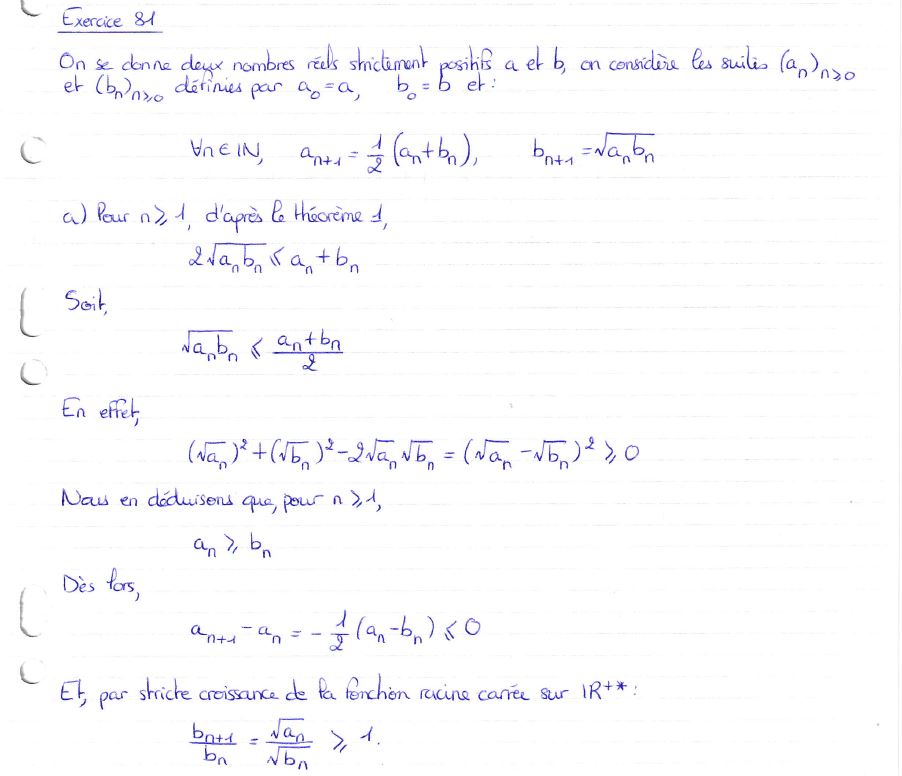 Exercice 81
On se donne deux nombres réels strictement positifs a et b, on considère les suites (a_n)_{n≥0}
et (b_n)_{n≥0} définies par a_0 = a, b_0 = b et :
∀n ∈ ℕ, a_{n+1} = 1/2 (a_n + b_n), b_{n+1} = √(a_n b_n)
a) Pour n ≥ 1, d'après le théorème 1,
2√(a_n b_n) ≤ a_n + b_n
Soit,
√(a_n b_n) ≤ (a_n + b_n)/2
En effet,
(√a_n)² + (√b_n)² - 2√a_n √b_n = (√a_n - √b_n)² ≥ 0
Nous en déduisons que, pour n ≥ 1,
a_n ≥ b_n
Dès lors,
a_{n+1} - a_n = - 1/2 (a_n - b_n) ≤ 0
Et, par stricte croissance de la fonction racine carrée sur ℝ^{+*} :
b_{n+1}/b_n = √a_n/√b_n ≥ 1.